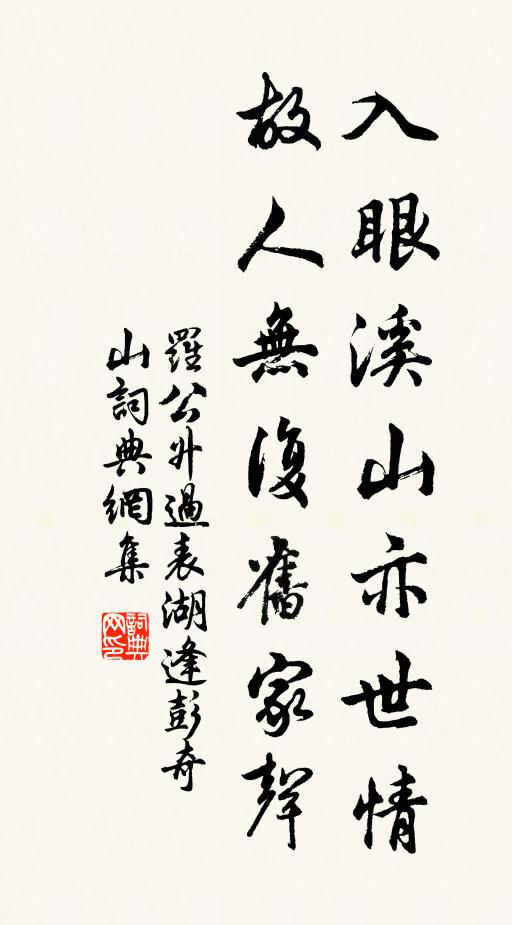 入眼溪山亦世情
故人無復舊家聲
羅公升過表湖逢彭奇
山詞典網集
詞典
网印